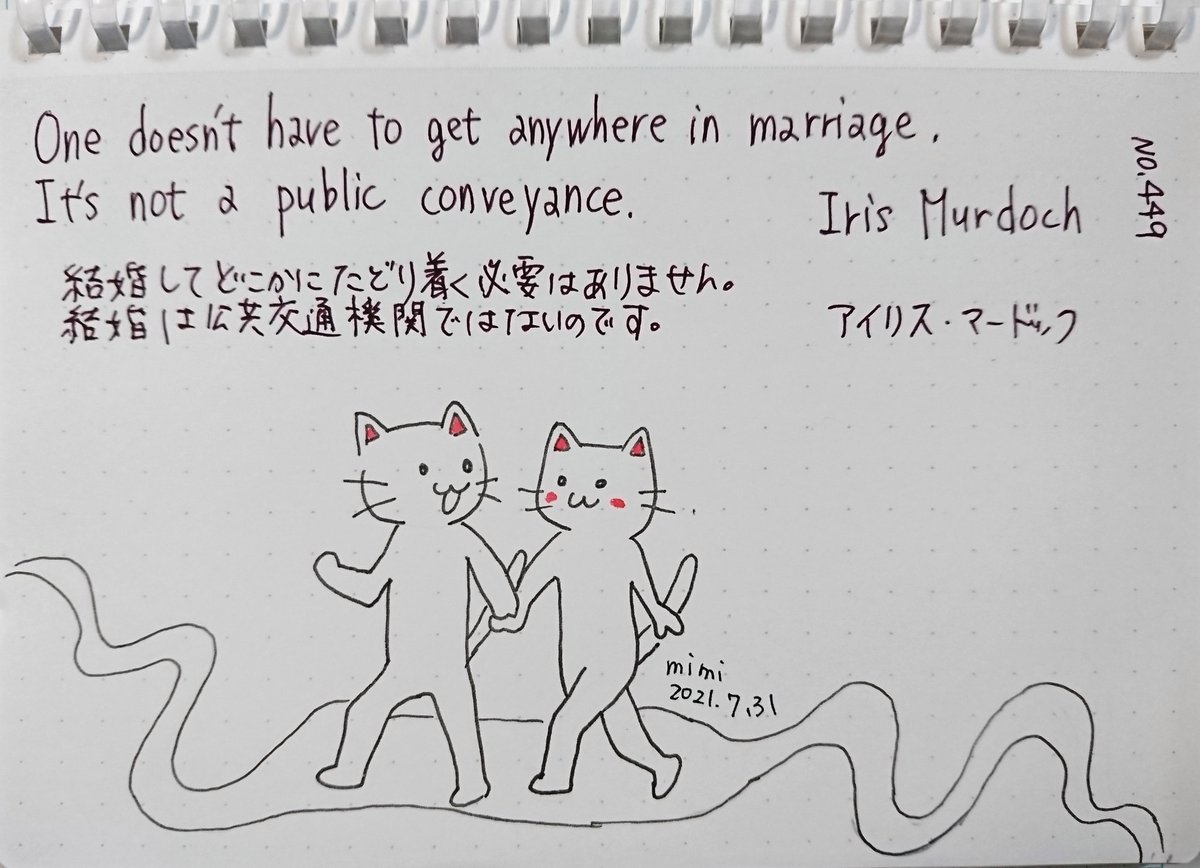 One doesn't have to get anywhere in marriage.
It's not a public conveyance.
Iris Murdoch
No.449
結婚してどこかにたどり着く必要はありません。
結婚は公共交通機関ではないのです。
アイリス・マードック
mimi
2021.7.31